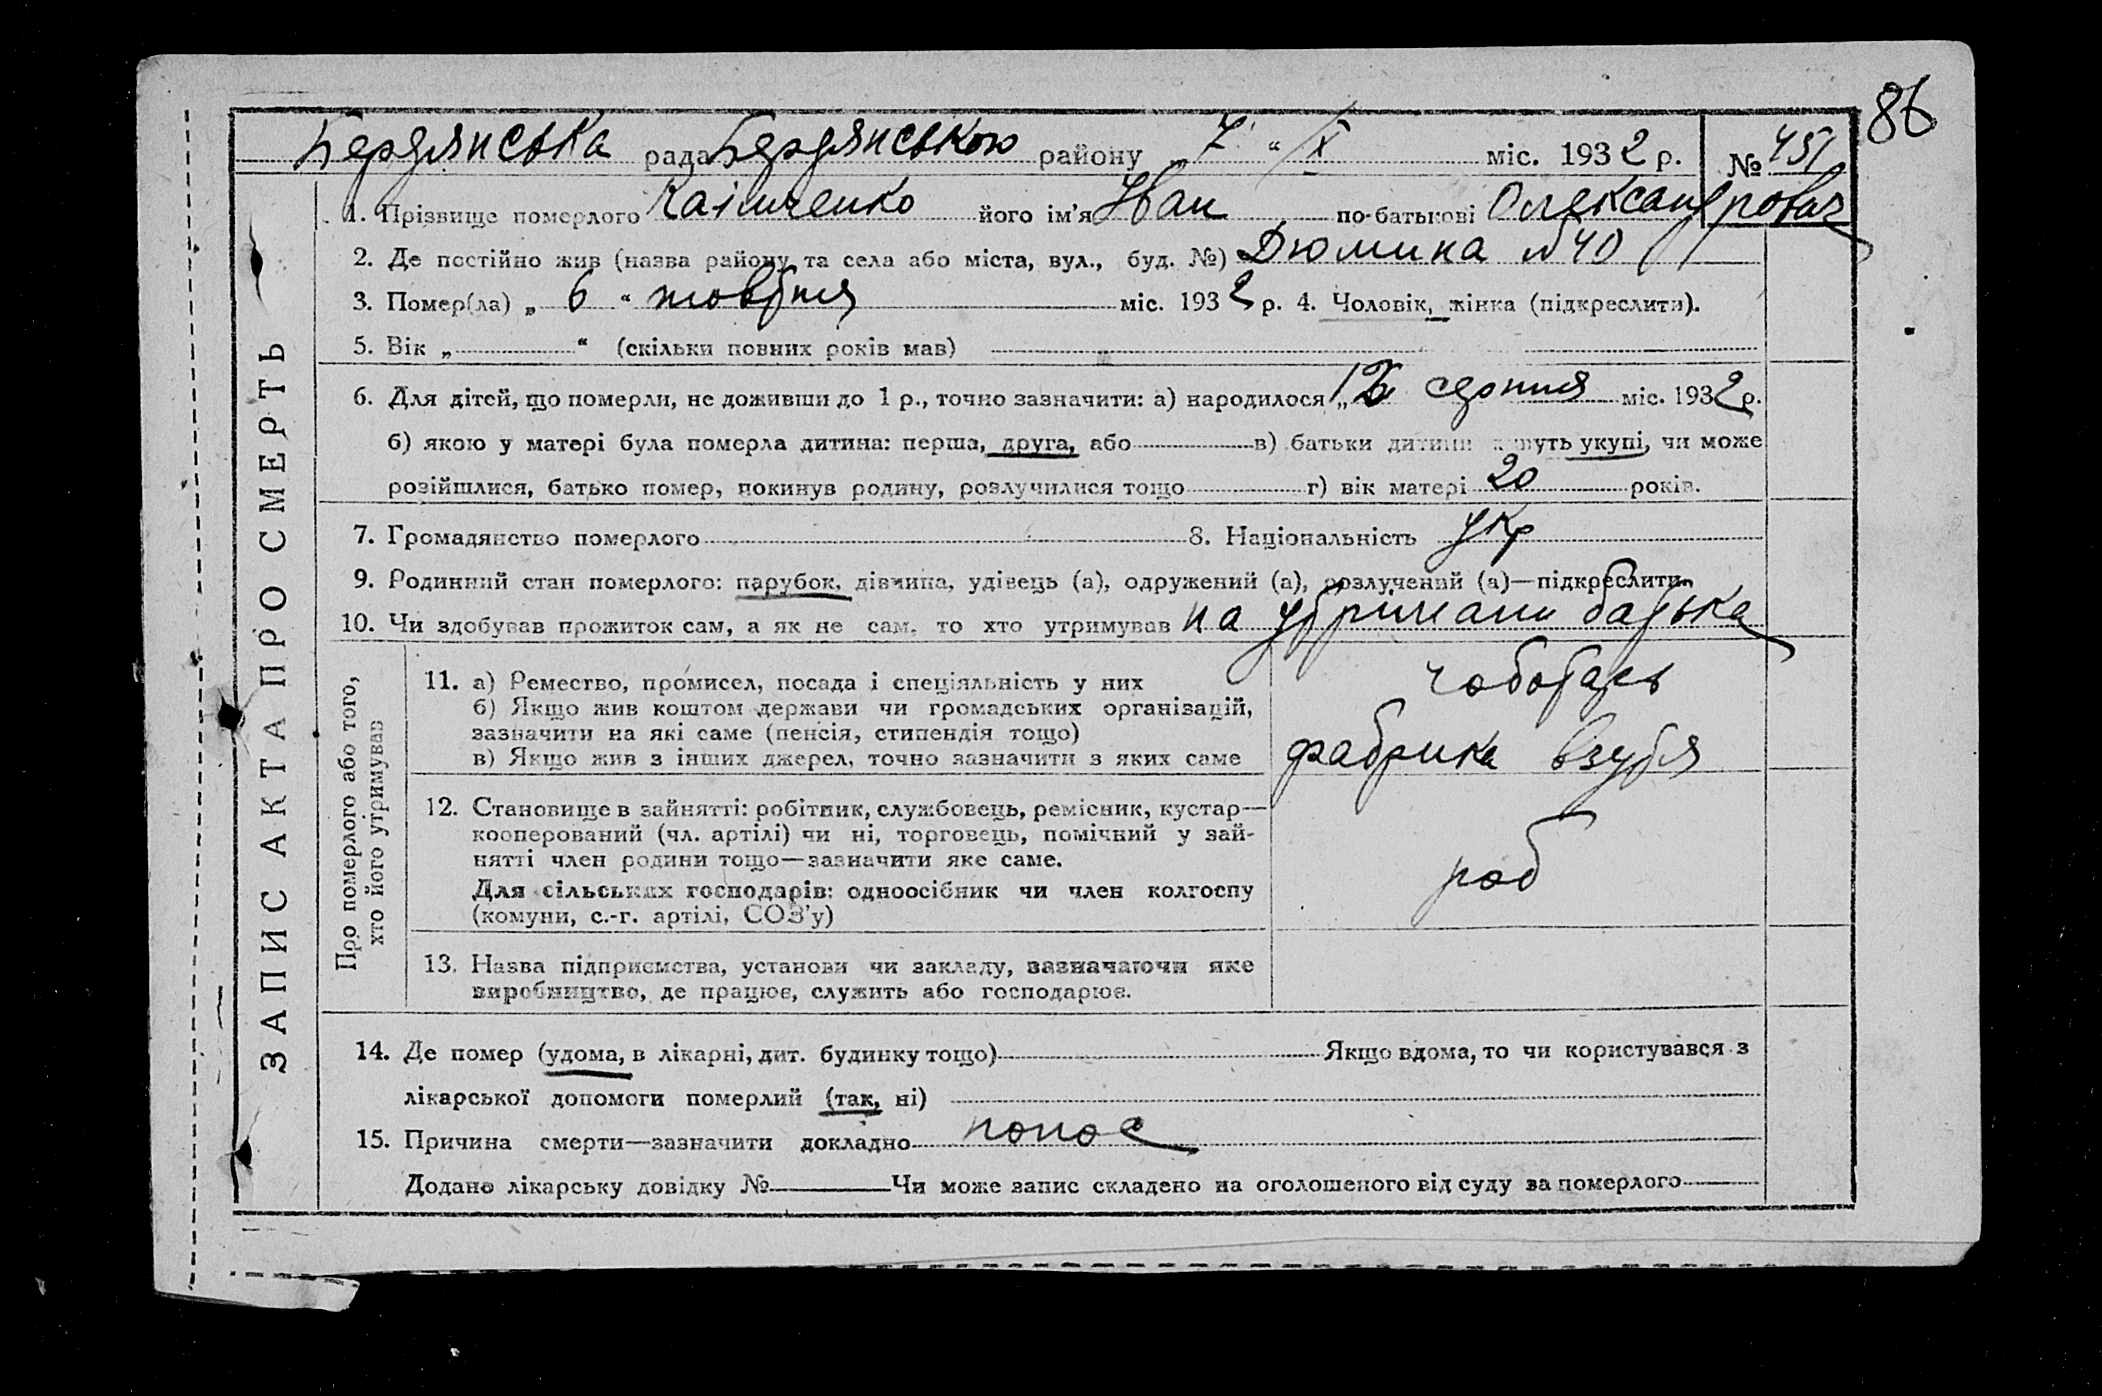 86
Бердянська рада Бердянського району „7“ X міс. 1932 р. № 451
1. Прізвище померлого його ім'я Іван по-батькові Олександрович
2. Де постійно жив (назва району та села або міста, вул., буд. №) Дюмина №40
3. Помер(ла) „6“ жовтня міс. 1932 р. 4. Чоловік, жінка (підкреслити).
5. Вік „ “ (скільки повних років мав)
6. Для дітей, що померли, не доживши до 1 р., точно зазначити: а) народилося „ серпня міс. 1932 р.
б) якою у матері була померла дитина: перша, друга, або в) батьки дитини живуть укупі, чи може
розійшлися, батько помер, покинув родину, розлучилися тощо г) вік матері 20 років.
7. Громадянство померлого 8. Національність укр
9. Родинний стан померлого: парубок, дівчина, удівець (а), одружений (а), розлучений (а)—підкреслити.
10. Чи здобував прожиток сам, а як не сам, то хто утримував на утримани батька
ЗАПИС АКТА ПРО СМЕРТЬ
Про померлого або того,
хто його утримував
11. а) Ремество, промисел, посада і спеціяльність у них
б) Якщо жив коштом держави чи громадських організацій,
зазначити на які саме (пенсія, стипендія тощо)
в) Якщо жив з інших джерел, точно зазначити з яких саме
чоботарь
фабрика взутя
12. Становище в зайнятті: робітник, службовець, ремісник, кустар—
кооперований (чл. артілі) чи ні, торговець, помічний у зай-
нятті член родини тощо—зазначити яке саме.
Для сільських господарів: одноосібник чи член колгоспу
(комуни, с.-г. артілі, СОЗ'у)
роб
13. Назва підприємства, установи чи закладу, зазначаючи яке
виробництво, де працює, служить або господарює.
14. Де помер (удома, в лікарні, дит. будинку тощо) Якщо вдома, то чи користувався з
лікарської допомоги померлий (так, ні)
15. Причина смерти—зазначити докладно понос
Додано лікарську довідку № Чи може запис складено на оголошеного від суду за померлого